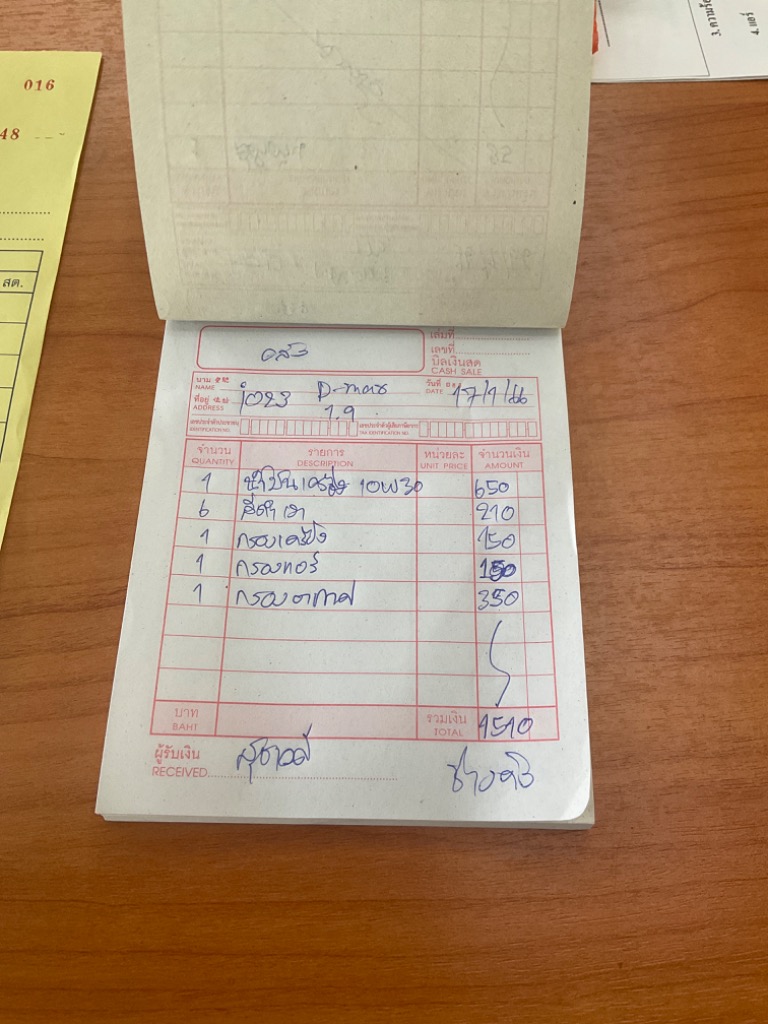 016
48
สต.
3. ความร้อ
4. แอร์
เล่มที่
เลขที่
บิลเงินสด
CASH SALE
นาม
NAME
D-max
วันที่
DATE
17/1/66
ที่อยู่
ADDRESS
1.9
เลขประจำตัวประชาชน
IDENTIFICATION NO.
เลขประจำตัวผู้เสียภาษีอากร
TAX IDENTIFICATION NO.
จำนวน รายการ หน่วยละ จำนวนเงิน
QUANTITY DESCRIPTION UNIT PRICE AMOUNT
1 น้ำมันเครื่อง 10W30 650
6 210
1 กรองเครื่อง 150
1 กรองโซล่า 150
1 กรองอากาศ 350
บาท รวมเงิน
BAHT TOTAL 1510
ผู้รับเงิน
RECEIVED